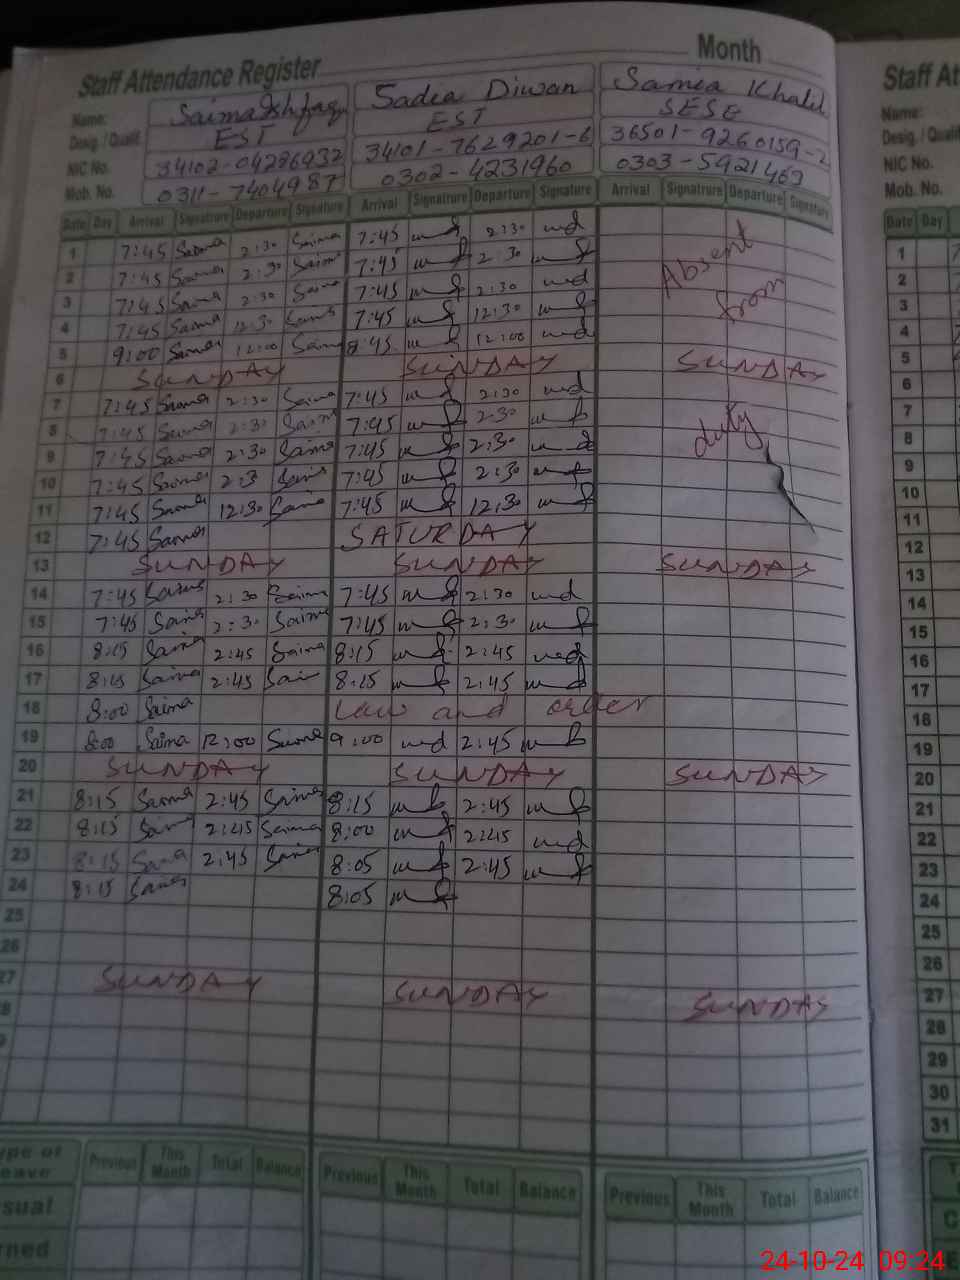 Staff Attendance Register Month Staff At
Name: Saima Ishfaq Sadea Diwan Samea Khalil Name:
Desig. / Qualif. EST EST SESE Desig. / Qualif
NIC No. 34102-04286932 34101-7629201-6 36501-9260159-2 NIC No.
Mob. No. 0311-7404987 0302-4231960 0303-5921469 Mob. No.
Date Day Arrival Signature Departure Signature Arrival Signature Departure Signature Arrival Signature Departure Signature Date Day
1 7:45 Saima 2:30 Saima 7:45 2:30 Absent 1
2 7:45 Saima 2:30 Saima 7:45 2:30 2
3 7:45 Saima 2:30 Saima 7:45 2:30 from 3
4 7:45 Saima 12:30 Saima 7:45 12:30 4
5 9:00 Saima 12:00 Saima 8:45 12:00 5
6 SUNDAY SUNDAY SUNDAY 6
7 7:45 Saima 2:30 Saima 7:45 2:30 7
8 7:45 Saima 2:30 Saima 7:45 2:30 duty 8
9 7:45 Saima 2:30 Saima 7:45 2:30 9
10 7:45 Saima 2:3 Saima 7:45 2:30 10
11 7:45 Saima 12:30 Saima 7:45 12:30 11
12 7:45 Saima SATURDAY 12
13 SUNDAY SUNDAY SUNDAY 13
14 7:45 Saima 2:30 Saima 7:45 2:30 14
15 7:45 Saima 2:30 Saima 7:45 2:30 15
16 8:15 Saima 2:45 Saima 8:15 2:45 16
17 8:15 Saima 2:45 Sai 8:15 2:45 17
18 8:00 Saima Law and order 18
19 8:00 Saima 12:00 Saima 9:00 2:45 19
20 SUNDAY SUNDAY SUNDAY 20
21 8:15 Saima 2:45 Saima 8:15 2:45 21
22 8:15 Saima 2:45 Saima 8:00 2:45 22
23 8:15 Saima 2:45 Saima 8:05 2:45 23
24 8:15 Saima 8:05 24
25 25
26 26
27 SUNDAY SUNDAY SUNDAY 27
8 28
9 29
30
31
ype of eave Previous This Month Total Balance Previous This Month Total Balance Previous This Month Total Balance
sual
rned
24-10-24 09:24